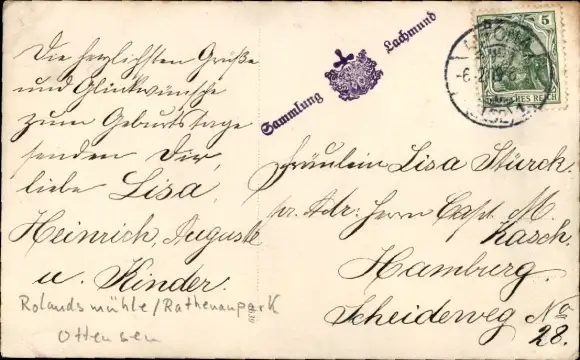 Die herzlichsten Grüße
und Glückwünsche
zum Geburtstage
senden Dir,
liebe Lisa,
Heinrich, Auguste
u. Kinder.
Rolandsmühle/Rathenaupark
Ottensen
Sammlung Lachmund
5
DEUTSCHES REICH
ALTONA
Fräulein Lisa Stürck.
pr. Adr. Herrn Capt. M.
Kasch.
Hamburg.
Scheideweg No
28.